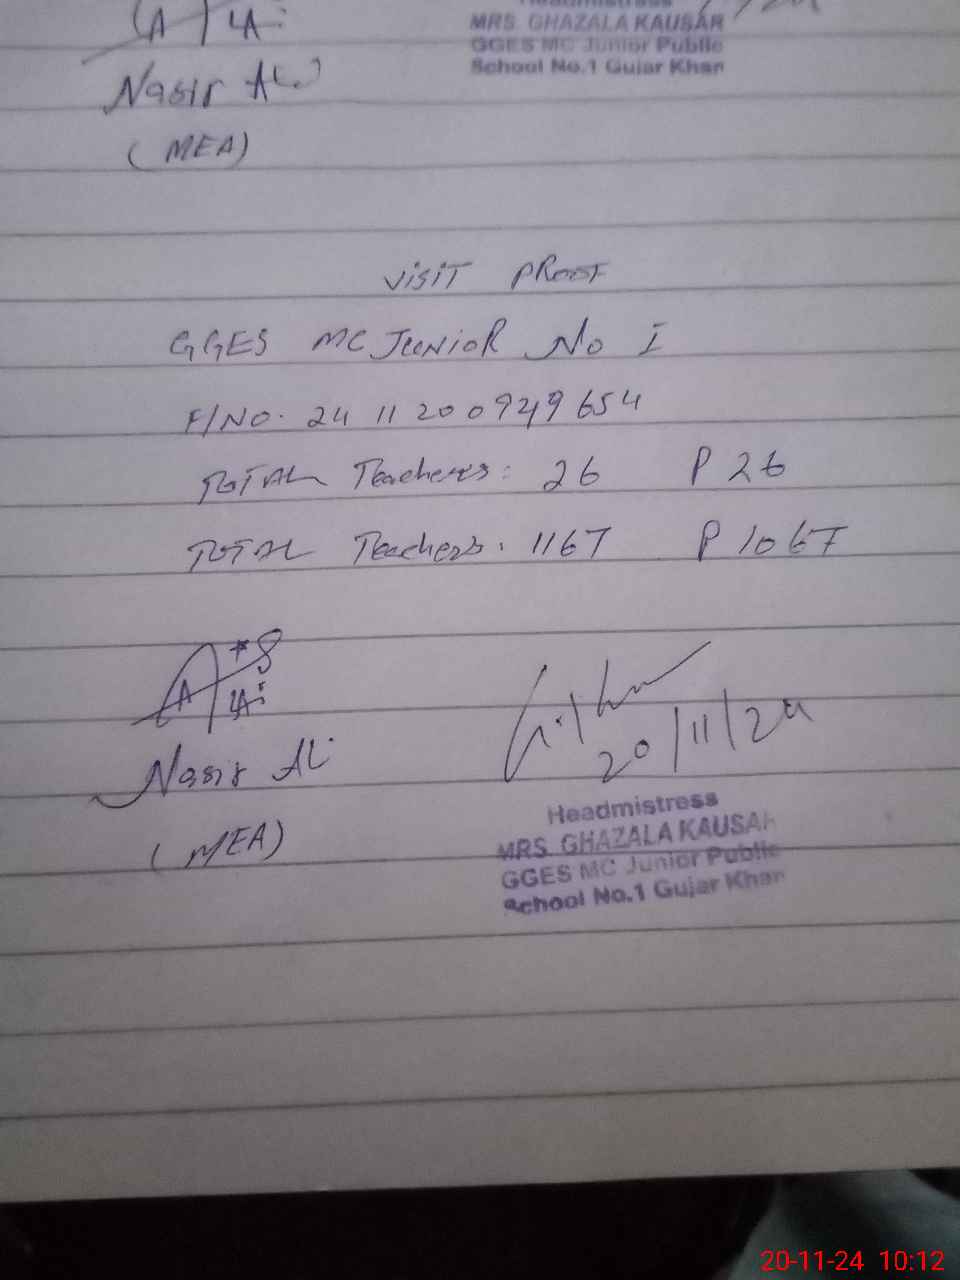 Headmistress
MRS. GHAZALA KAUSAR
GGES MC Junior Public
School No.1 Gujar Khan
Nasir Ali
(MEA)
VISIT PROOF
GGES MC JUNIOR No I
F/NO. 24 11 200929654
TOTAL Teachers: 26 P 26
TOTAL Teachers. 1167 P 1067
Nasir Ali
(MEA)
20/11/24
Headmistress
MRS. GHAZALA KAUSAR
GGES MC Junior Public
School No.1 Gujar Khan
20-11-24 10:12